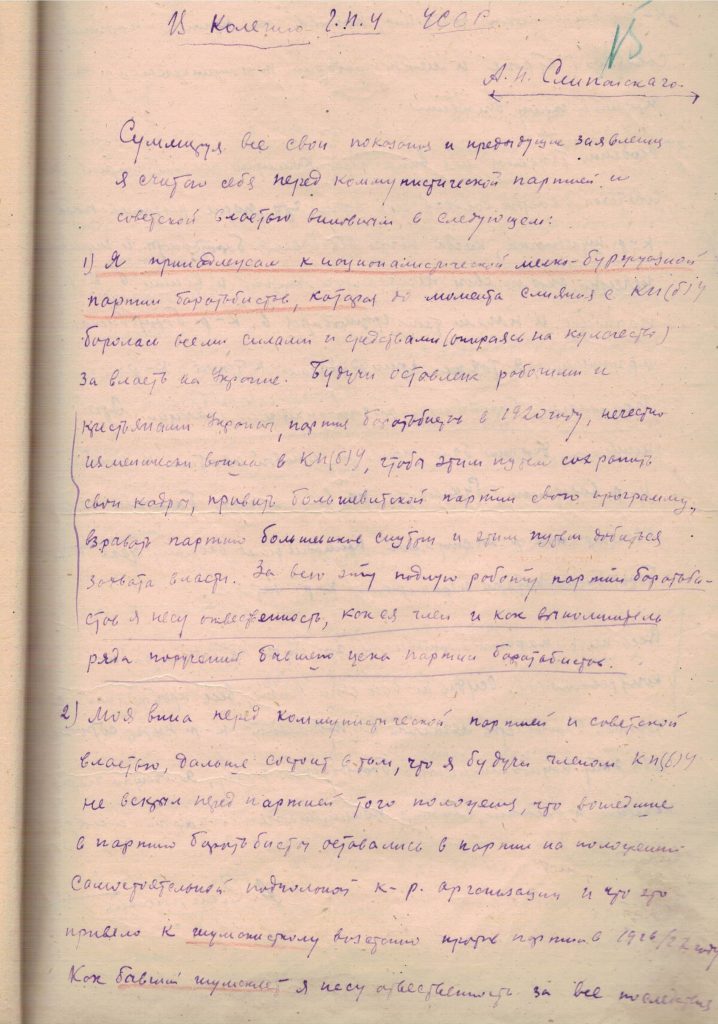 В Колегию Г.П.У УССР
А.П. Слипанскаго.
Суммируя все свои показания и предыдущие заявления
я считаю себя перед коммунистической партией и
советской властью виновным в следующем:
1) Я принадлежал к националистической мелко-буржуазной
партии боротьбистов, которая до момента слияния с КП(б)У
боролась всеми силами и средствами (опираясь на кулачество)
за власть на Украине. Будучи оставлена рабочими и
крестьянами Украины, партия боротьбистов в 1920 году, нечестно
изменически вошла в КП(б)У, чтобы этим путем сохранить
свои кадры, привить большевитской партии свою программу,
взрвать партию большевиков снутри и этим путем добиться
захвата власти. За всю эту подлую работу партии боротьби-
стов я несу отвественность, как ея член и как выполнитель
ряда поручений бывшего цека партии боротьбистов.
2) Моя вина перед коммунистической партией и советской
властью, дальше состоит в том, что я будучи членом КП(б)У
не вскрыл перед партией того положения, что вошедшие
в партию боротьбисты оставались в партии на положении
самостоятельной подпольной к-р. организации и что это
привело к шумскисткому возстанию против партии в 1926/27 году
Как бывший шумскист я несу отвественность за все последствия